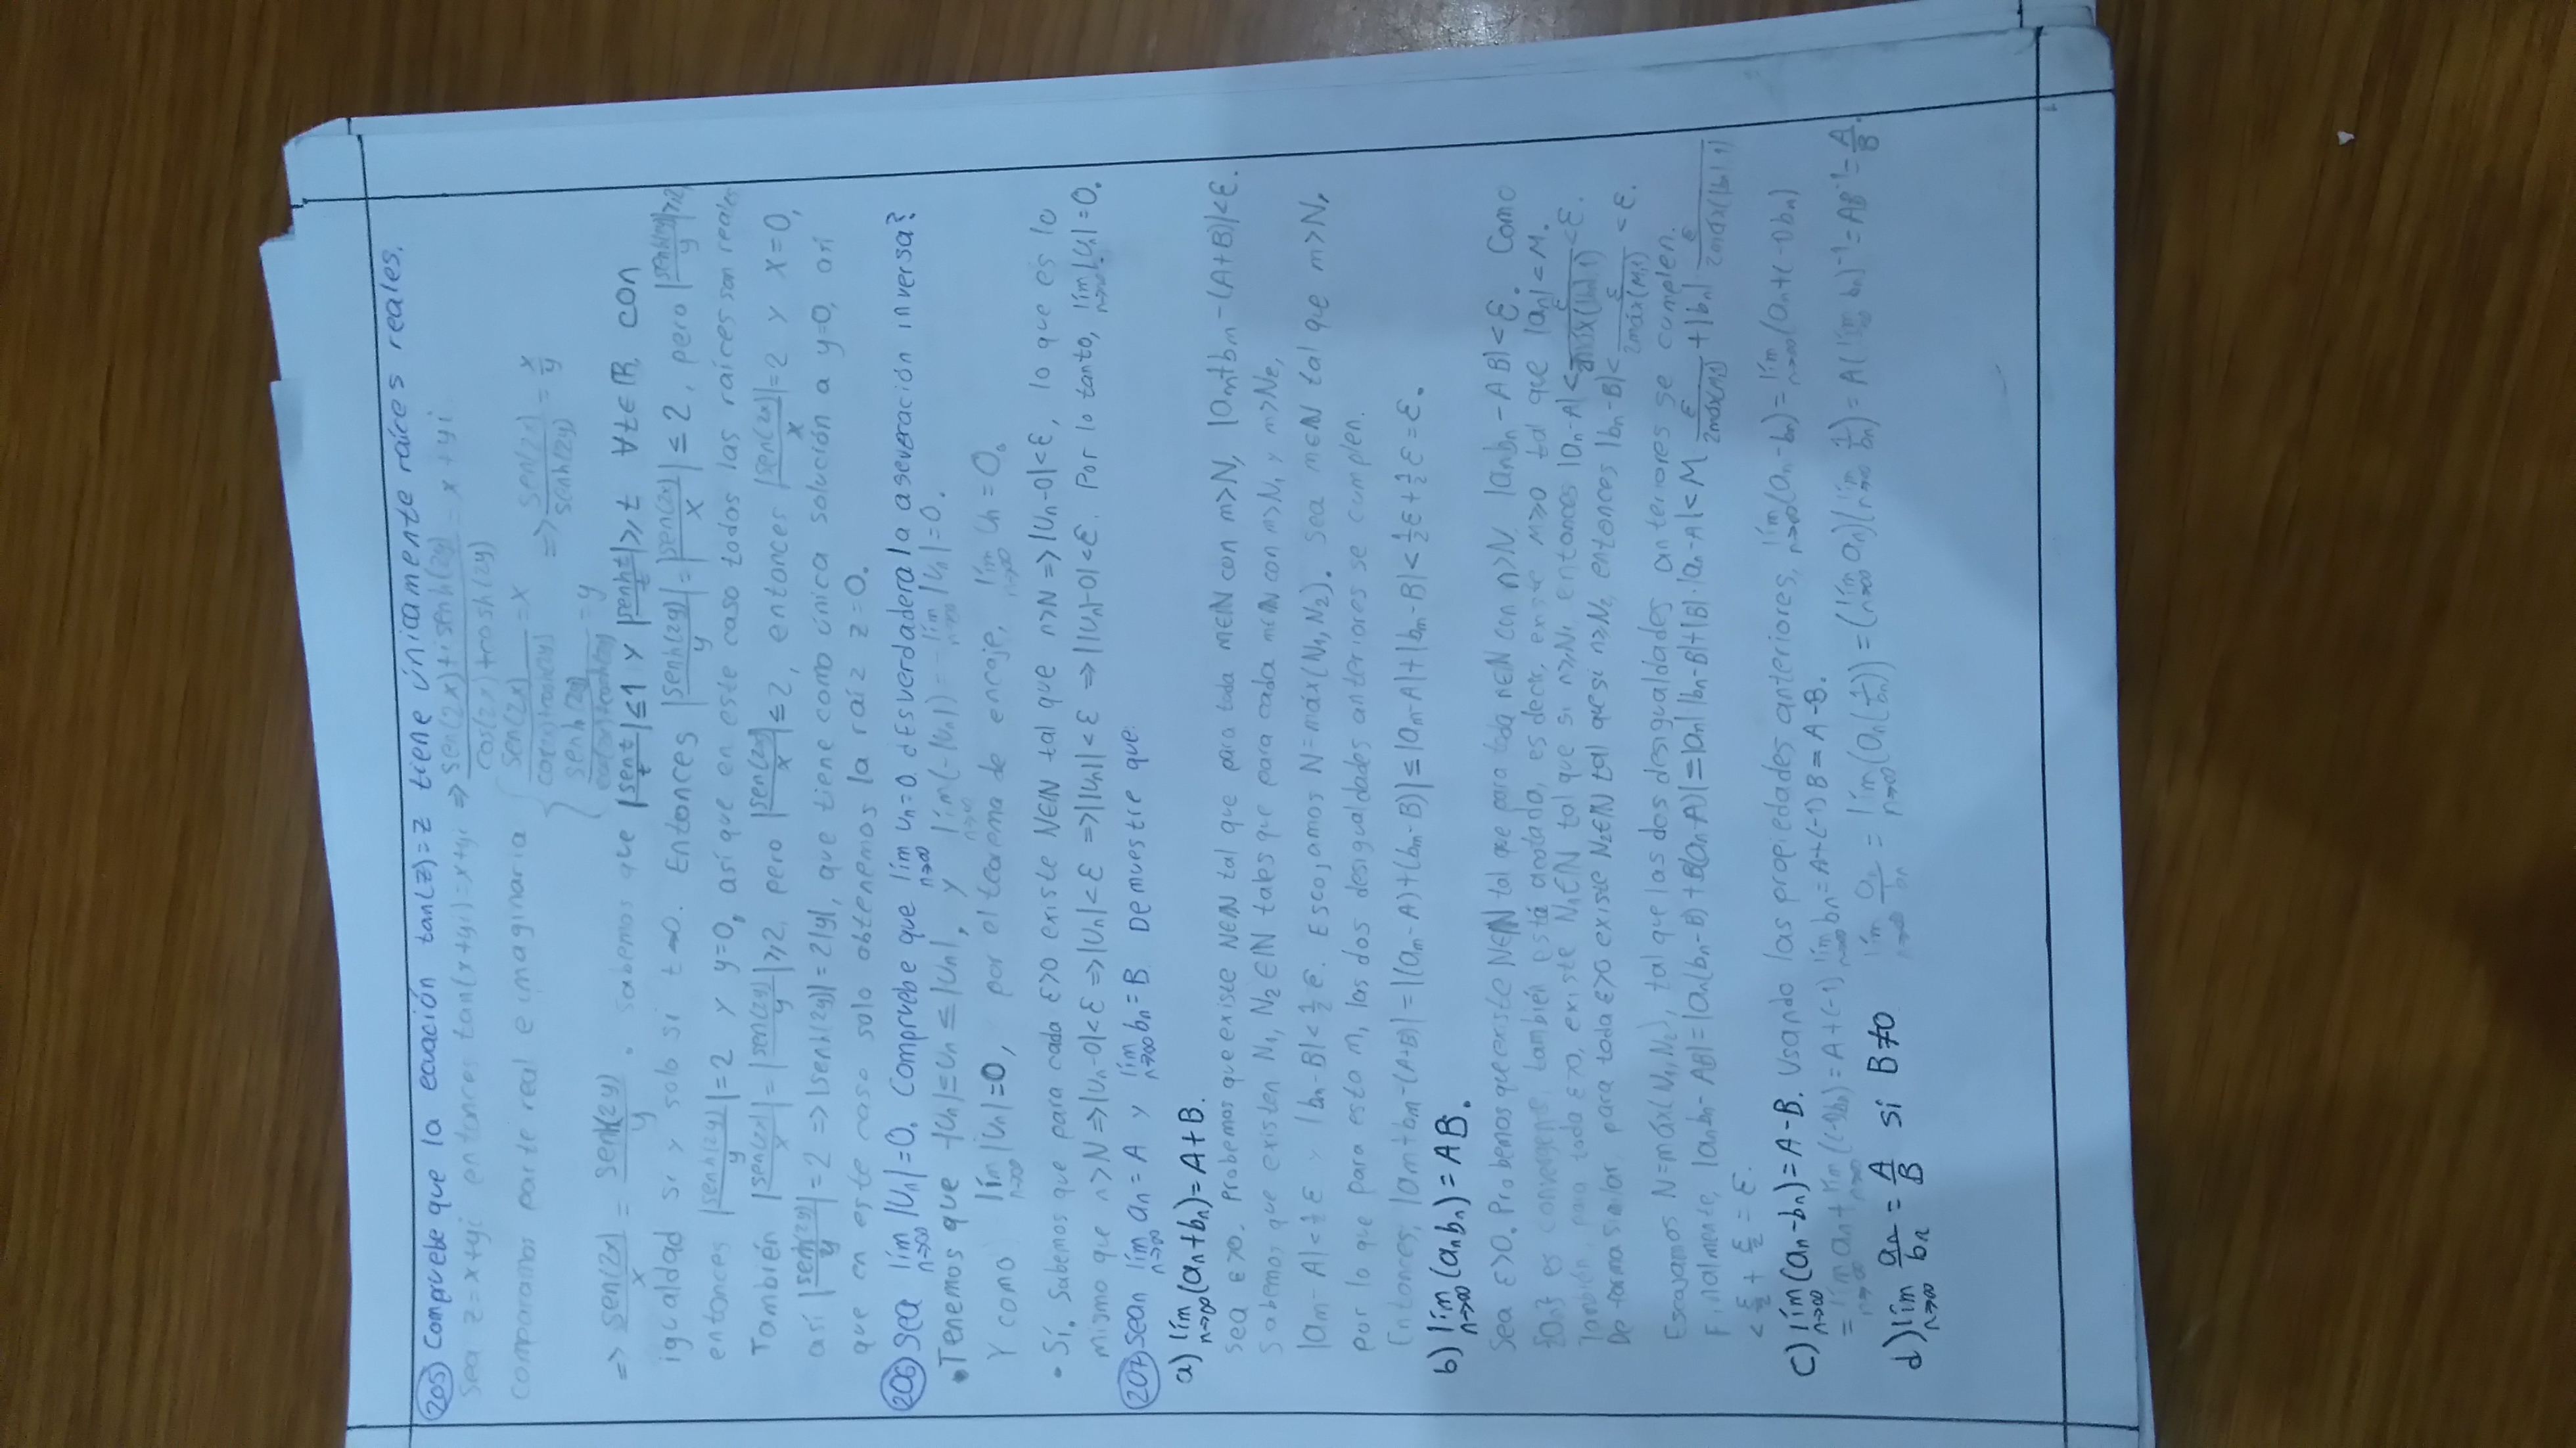 205) Compruebe que la ecuación tan(z)=z tiene únicamente raíces reales.
Sea z=x+yi entonces tan(x+yi)=x+yi ⇒ (sen(2x)+i senh(2y))/(cos(2x)+cosh(2y)) = x+yi
comparamos parte real e imaginaria { sen(2x)/(cos(2x)+cosh(2y)) = x, senh(2y)/(cos(2x)+cosh(2y)) = y ⇒ sen(2x)/senh(2y) = x/y
⇒ sen(2x)/x = senh(2y)/y. Sabemos que |sen t/t| ≤ 1 y |senh t/t| ≥ t ∀t∈ℝ, con
igualdad si y solo si t→0. Entonces |senh(2y)/y| = |sen(2x)/x| ≤ 2, pero |senh(2y)/y| ≥ 2,
entonces |senh(2y)/y| = 2 y y=0, así que en este caso todas las raíces son reales
También |sen(2x)/x| = |sen(2y)/y| ≥ 2, pero |sen(2x)/x| ≤ 2, entonces |sen(2x)/x| = 2 y x=0,
así |senh(2y)/y| = 2 ⇒ |senh(2y)| = 2|y|, que tiene como única solución a y=0, así
que en este caso solo obtenemos la raíz z=0.
206) Sea lím n→∞ |Un|=0. Compruebe que lím n→∞ Un=0. ¿Es verdadera la aseveración inversa?
• Tenemos que -|Un| ≤ Un ≤ |Un|, y lím n→∞ (-|Un|) = -lím n→∞ |Un| = 0.
Y como lím n→∞ |Un|=0, por el teorema de encaje, lím n→∞ Un = 0.
• Sí. Sabemos que para cada ε>0 existe N∈ℕ tal que n>N ⇒ |Un-0|<ε, lo que es lo
mismo que n>N ⇒ |Un-0|<ε ⇒ |Un|<ε ⇒ ||Un||<ε ⇒ ||Un|-0|<ε. Por lo tanto, lím n→∞ |Un|=0.
207) Sean lím n→∞ an = A y lím n→∞ bn = B Demuestre que:
a) lím n→∞ (an+bn) = A+B.
Sea ε>0. Probemos que existe N∈ℕ tal que para toda m∈ℕ con m>N, |am+bm-(A+B)|<ε.
Sabemos que existen N₁, N₂∈ℕ tales que para cada m∈ℕ con m>N₁ y m>N₂,
|am-A|<½ε y |bm-B|<½ε. Escojamos N=máx(N₁,N₂). Sea m∈ℕ tal que m>N,
por lo que para esta m, las dos desigualdades anteriores se cumplen.
Entonces, |am+bm-(A+B)| = |(am-A)+(bm-B)| ≤ |am-A|+|bm-B| < ½ε+½ε = ε.
b) lím n→∞ (anbn) = AB.
Sea ε>0. Probemos que existe N∈ℕ tal que para toda n∈ℕ con n>N, |anbn-AB|<ε. Como
{an} es convergente, también está acotada, es decir, existe M≥0 tal que |an|<M.
También, para toda ε>0, existe N₁∈ℕ tal que si n≥N₁ entonces |an-A| < ε/(2máx(|bn|,1)) < ε.
De forma similar, para toda ε>0 existe N₂∈ℕ tal que si n≥N₂ entonces |bn-B| < ε/(2máx(M,1)) < ε.
Escojamos N=máx(N₁,N₂), tal que las dos desigualdades anteriores se cumplen.
Finalmente, |anbn-AB| = |an(bn-B)+B(an-A)| ≤ |an||bn-B|+|B|·|an-A| < M ε/(2máx(M,1)) + |bn| ε/(2máx(|bn|,1))
< ε/2 + ε/2 = ε.
c) lím n→∞ (an-bn) = A-B. Usando las propiedades anteriores, lím n→∞ (an-bn) = lím n→∞ (an+(-1)bn)
= lím n→∞ an + lím n→∞ ((-1)bn) = A+(-1) lím n→∞ bn = A+(-1)B = A-B.
d) lím n→∞ an/bn = A/B si B≠0 lím n→∞ an/bn = lím n→∞ (an(1/bn)) = (lím n→∞ an)(lím n→∞ 1/bn) = A(lím n→∞ bn)⁻¹ = AB⁻¹ = A/B.